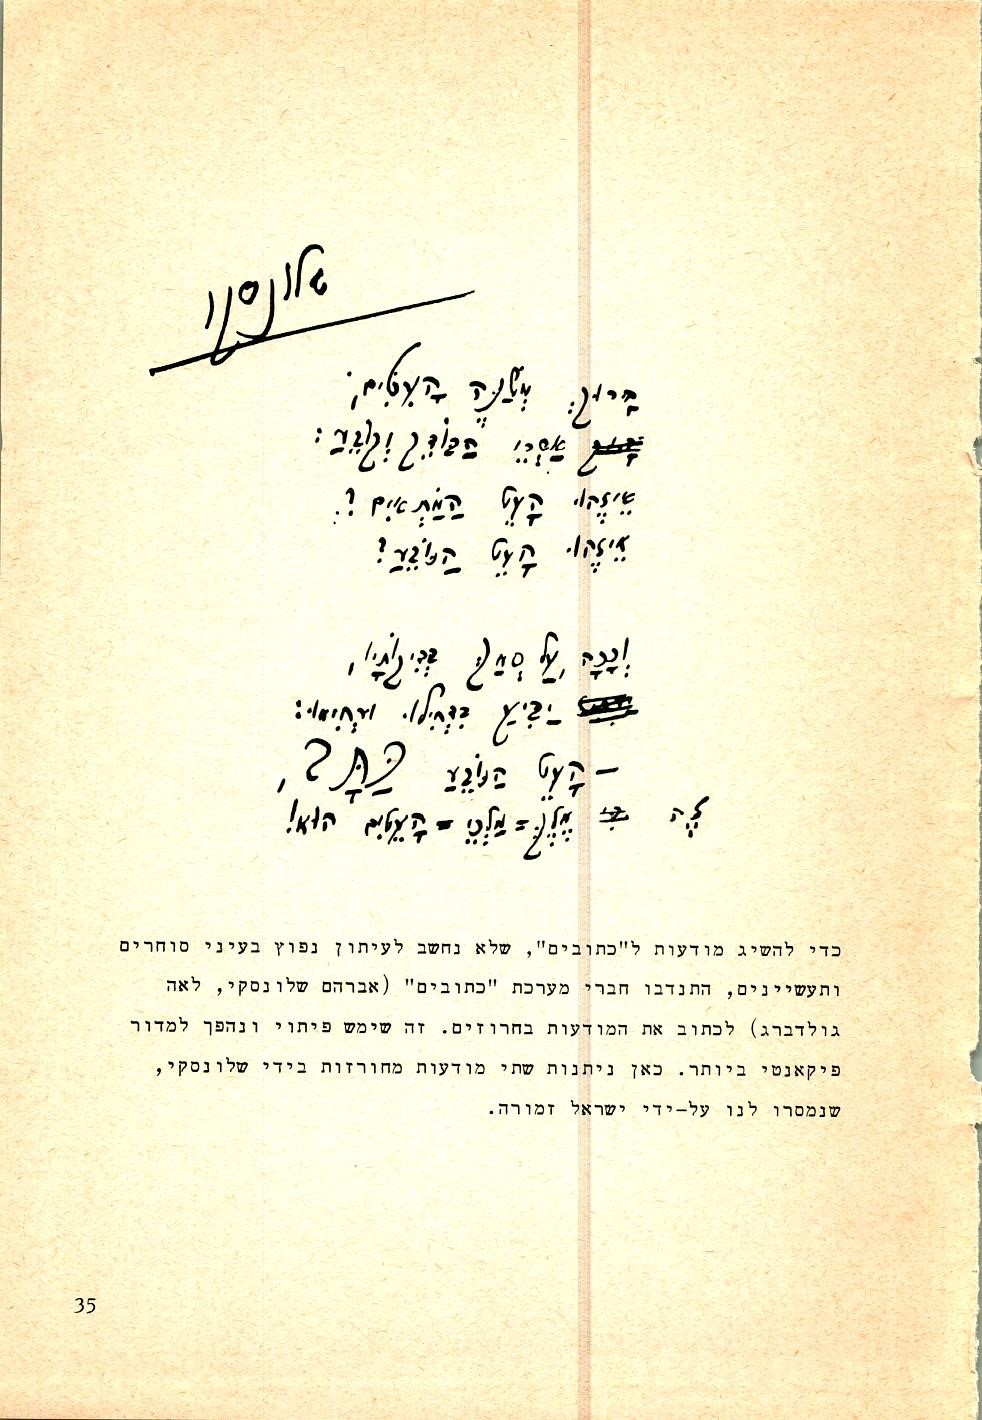 שלונסקי
בָּרוּךְ מְשַׁנֶּה הָעֵטִים,
אַשְׁרֵי הַבּוֹדֵק וְקוֹבֵעַ:
אֵיזֶהוּ הָעֵט הַמַּתְאִים?
אֵיזֶהוּ הָעֵט הַנּוֹבֵעַ?
וְכָכָה, עַל סְמַךְ בְּדִיקוֹתָיו,
יַבִּיעַ בִּדְחִילוּ וּרְחִימוּ:
— הָעֵט הַנּוֹבֵעַ
זֶה מֶלֶךְ=מַלְכֵי=הָעֵטִים הוּא!
כדי להשיג מודעות ל"כתובים", שלא נחשב לעיתון נפוץ בעיני סוחרים
ותעשיינים, התנדבו חברי מערכת "כתובים" (אברהם שלונסקי, לאה
גולדברג) לכתוב את המודעות בחרוזים. זה שימש פיתוי ונהפך למדור
פיקאנטי ביותר. כאן ניתנות שתי מודעות מחורזות בידי שלונסקי,
שנמסרו לנו על-ידי ישראל זמורה.
35